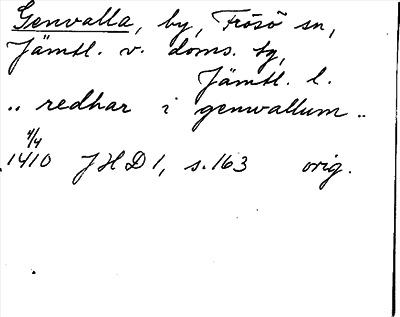 Genvalla, by, Frösö sn,
Jämtl. v. doms. tg,
Jämtl. l.
.. redhar i genwallum ..
4/4
1410 JHD 1, s. 163 orig.